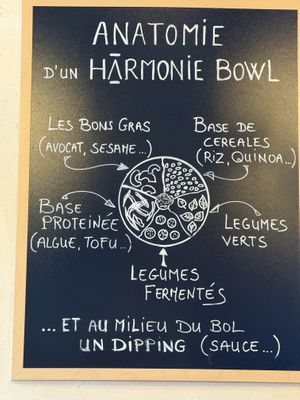 ANATOMIE
D'UN HĀRMONIE BOWL
LES BONS GRAS
(AVOCAT, SESAME...)
BASE
DE
CEREALES
(RIZ, QUINOA...)
BASE
PROTEINÉE
(ALGUE, TOFU...)
LEGUMES
VERTS
LEGUMES
FERMENTÉS
... ET AU MILIEU DU BOL
UN DIPPING (SAUCE...)